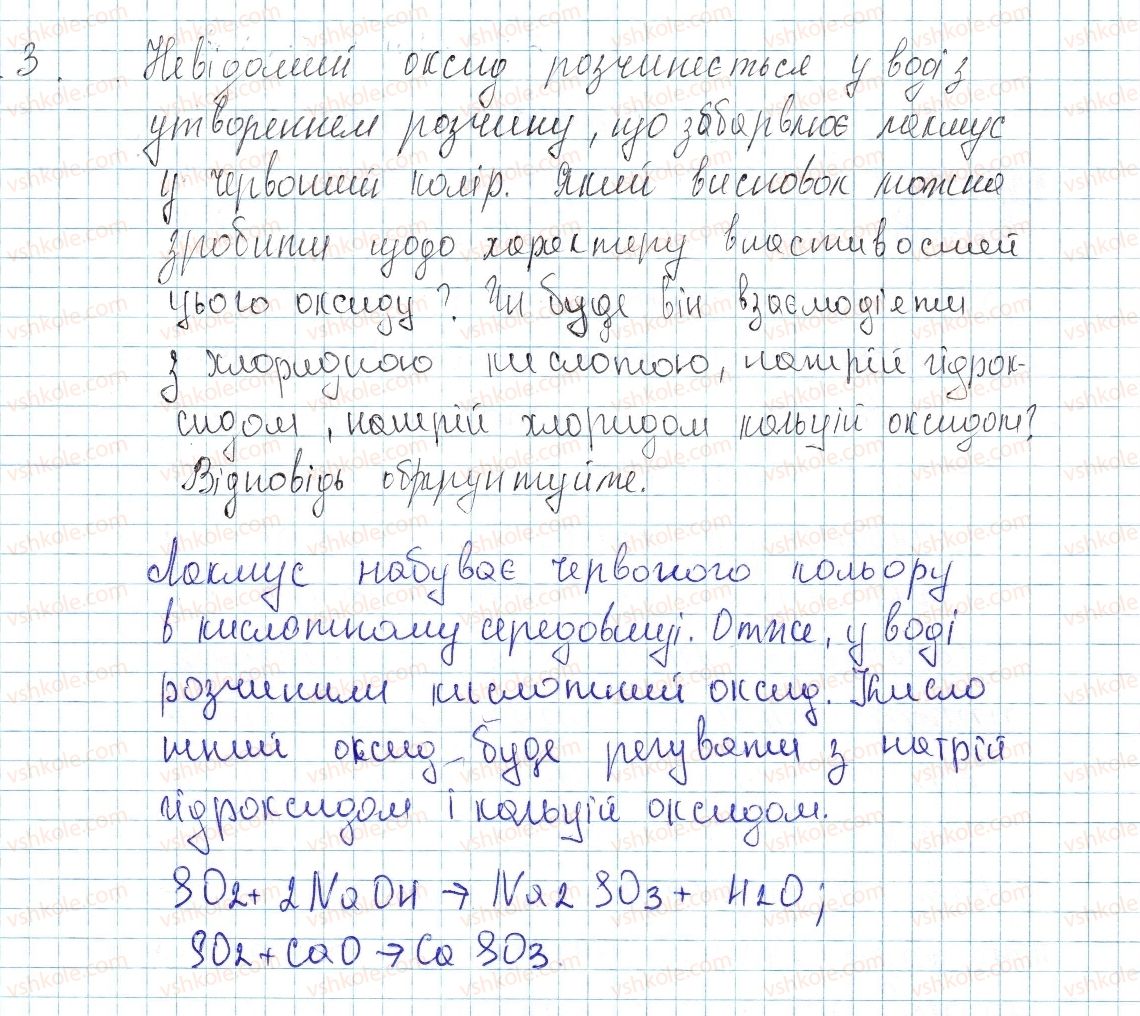 3. Невідомий оксид розчиняється у воді з
утворенням розчину, що забарвлює лакмус
у червоний колір. Який висновок можна
зробити щодо характеру властивостей
цього оксиду? Чи буде він взаємодіяти
з хлоридною кислотою, натрій гідрок-
сидом, натрій хлоридом кальцій оксидом?
Відповідь обґрунтуйте.
Лакмус набуває червоного кольору
в кислотному середовищі. Отже, у воді
розчинили кислотний оксид. Кисло
тний оксид буде регувати з натрій
гідроксидом і кальцій оксидом.
SO2+ 2NaOH → Na2SO3 + H2O;
SO2 + CaO → CaSO3.